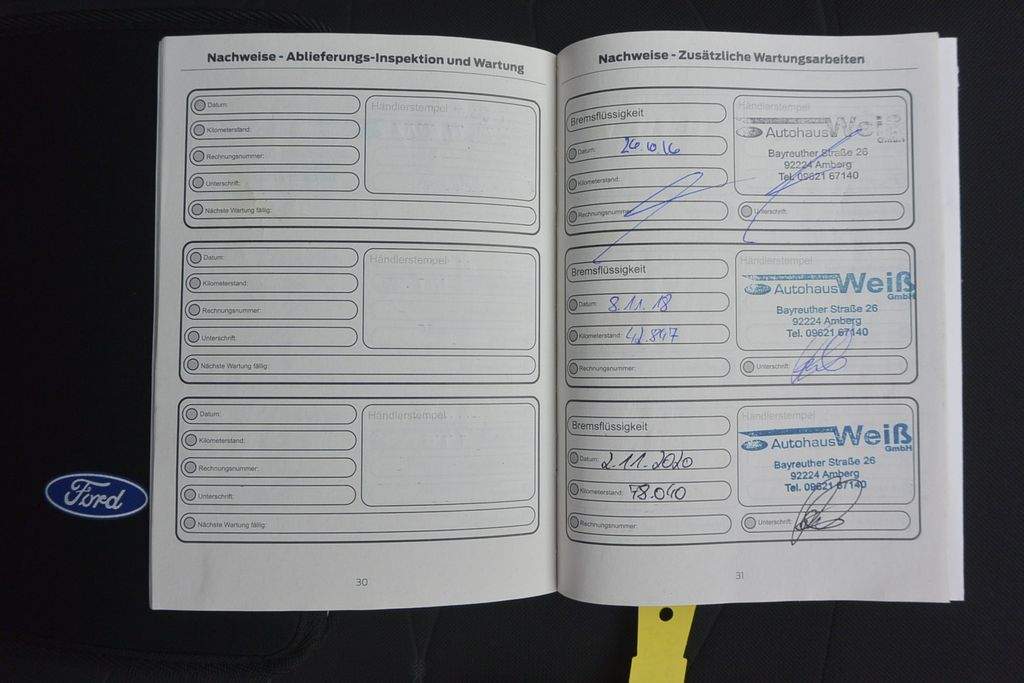 Nachweise - Ablieferungs-Inspektion und Wartung
Datum:
Händlerstempel
Kilometerstand:
Rechnungsnummer:
Unterschrift:
Nächste Wartung fällig:
Datum:
Händlerstempel
Kilometerstand:
Rechnungsnummer:
Unterschrift:
Nächste Wartung fällig:
Datum:
Händlerstempel
Kilometerstand:
Rechnungsnummer:
Unterschrift:
Nächste Wartung fällig:
30
Nachweise - Zusätzliche Wartungsarbeiten
Bremsflüssigkeit
Datum: 26.10.16
Kilometerstand:
Rechnungsnummer:
Händlerstempel
Autohaus Weiß
GmbH
Bayreuther Straße 26
92224 Amberg
Tel. 09621 67140
Unterschrift:
Bremsflüssigkeit
Datum: 8.11.18
Kilometerstand: 42.847
Rechnungsnummer:
Händlerstempel
Autohaus Weiß
GmbH
Bayreuther Straße 26
92224 Amberg
Tel. 09621 67140
Unterschrift:
Bremsflüssigkeit
Datum: 2.11.2020
Kilometerstand: 78.040
Rechnungsnummer:
Händlerstempel
Autohaus Weiß
GmbH
Bayreuther Straße 26
92224 Amberg
Tel. 09621 67140
Unterschrift:
31
Ford